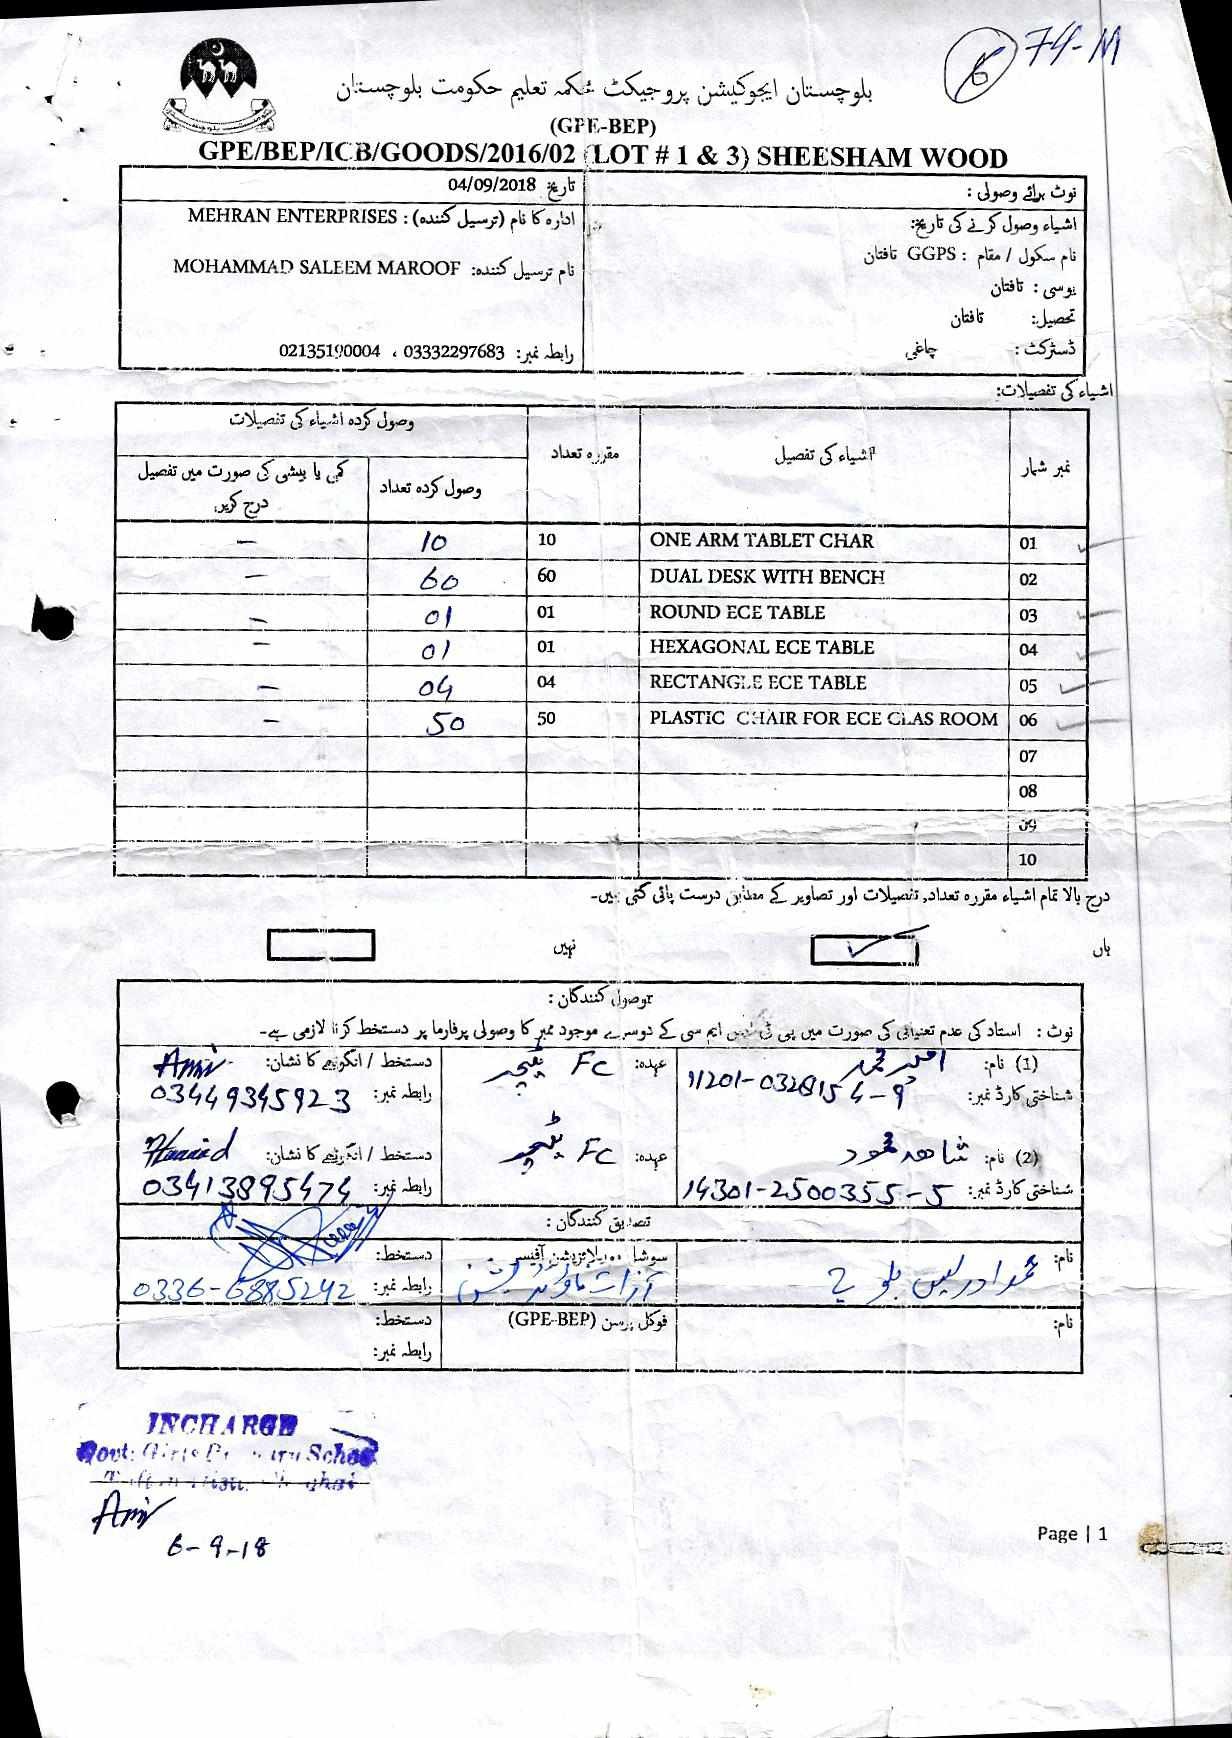 6 74-M
بلوچستان ایجوکیشن پروجیکٹ محکمہ تعلیم حکومت بلوچستان
(GPE-BEP)
GPE/BEP/ICB/GOODS/2016/02 (LOT # 1 & 3) SHEESHAM WOOD
نوٹ برائے وصولی :
تاریخ 04/09/2018
اشیاء وصول کرنے کی تاریخ:
ادارہ کا نام (ترسیل کنندہ) : MEHRAN ENTERPRISES
نام سکول / مقام : GGPS تافتان
نام ترسیل کنندہ: MOHAMMAD SALEEM MAROOF
یوسی : تافتان
تحصیل: تافتان
ڈسٹرکٹ : چاغی
رابطہ نمبر: 03332297683 ، 02135190004
اشیاء کی تفصیلات:
نمبر شمار اشیاء کی تفصیل مقررہ تعداد وصول کردہ اشیاء کی تفصیلات
وصول کردہ تعداد کمی یا بیشی کی صورت میں تفصیل درج کریں
01 ONE ARM TABLET CHAR 10 10 –
02 DUAL DESK WITH BENCH 60 60 –
03 ROUND ECE TABLE 01 01 –
04 HEXAGONAL ECE TABLE 01 01 –
05 RECTANGLE ECE TABLE 04 04 –
06 PLASTIC CHAIR FOR ECE CLAS ROOM 50 50 –
07
08
09
10
درج بالا تمام اشیاء مقررہ تعداد, تفصیلات اور تصاویر کے مطابق درست پائی گئی ہیں۔
ہاں ✓ نہیں
وصول کنندگان :
نوٹ : استاد کی عدم تعیناتی کی صورت میں پی ٹی ایس ایم سی کے دوسرے موجود ممبر کا وصولی پرفارما پر دستخط کرنا لازمی ہے۔
(1) نام: امیر محمد عہدہ: FC ٹیچر دستخط / انگوٹھے کا نشان: Amir
شناختی کارڈ نمبر: 11201-0328154-9 رابطہ نمبر: 03449345923
(2) نام: شاهد محمود عہدہ: FC ٹیچر دستخط / انگوٹھے کا نشان:
شناختی کارڈ نمبر: 14301-2500355-5 رابطہ نمبر: 03413895474
تصدیق کنندگان :
نام: محمد ادریس بلوچ سوشل موبلائزیشن آفیسر دستخط:
آزات فاؤنڈیشن رابطہ نمبر: 0336-6885242
نام: فوکل پرسن (GPE-BEP) دستخط:
رابطہ نمبر:
INCHARGE
Govt: Girls Primary School
Amir
6-9-18
Page | 1